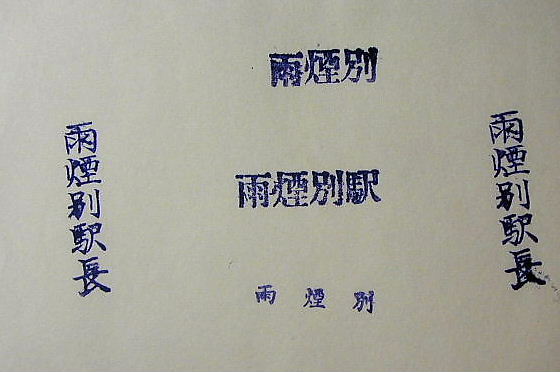 雨煙別
雨煙別駅
雨煙別
雨煙别駅長
雨煙别駅長